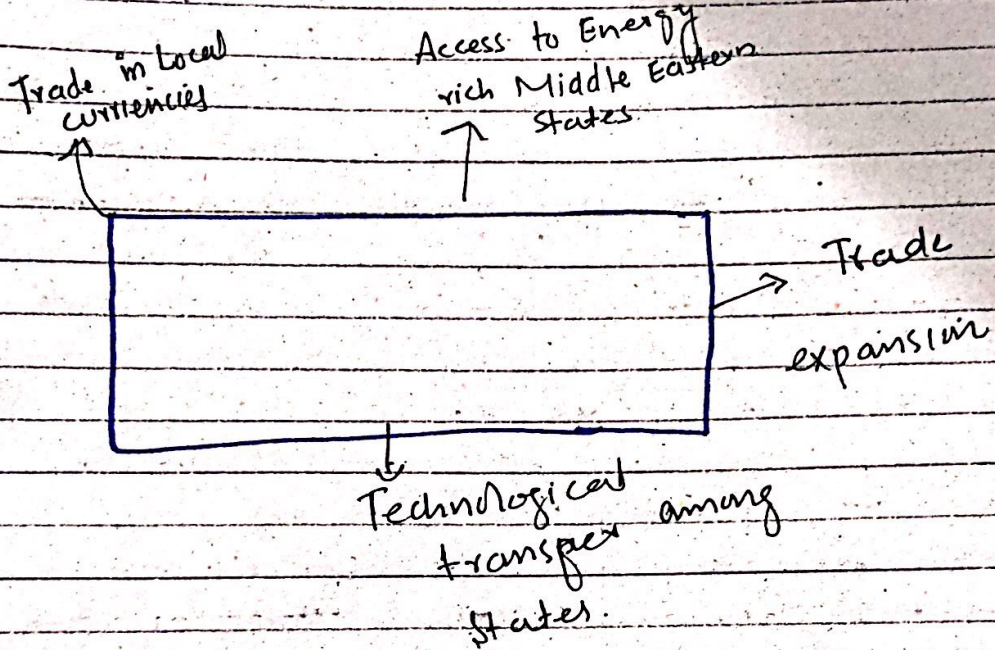 Trade in Local
currencies
Access to Energy
rich Middle Eastern
states
Trade
expansion
Technological
transfer among
states.